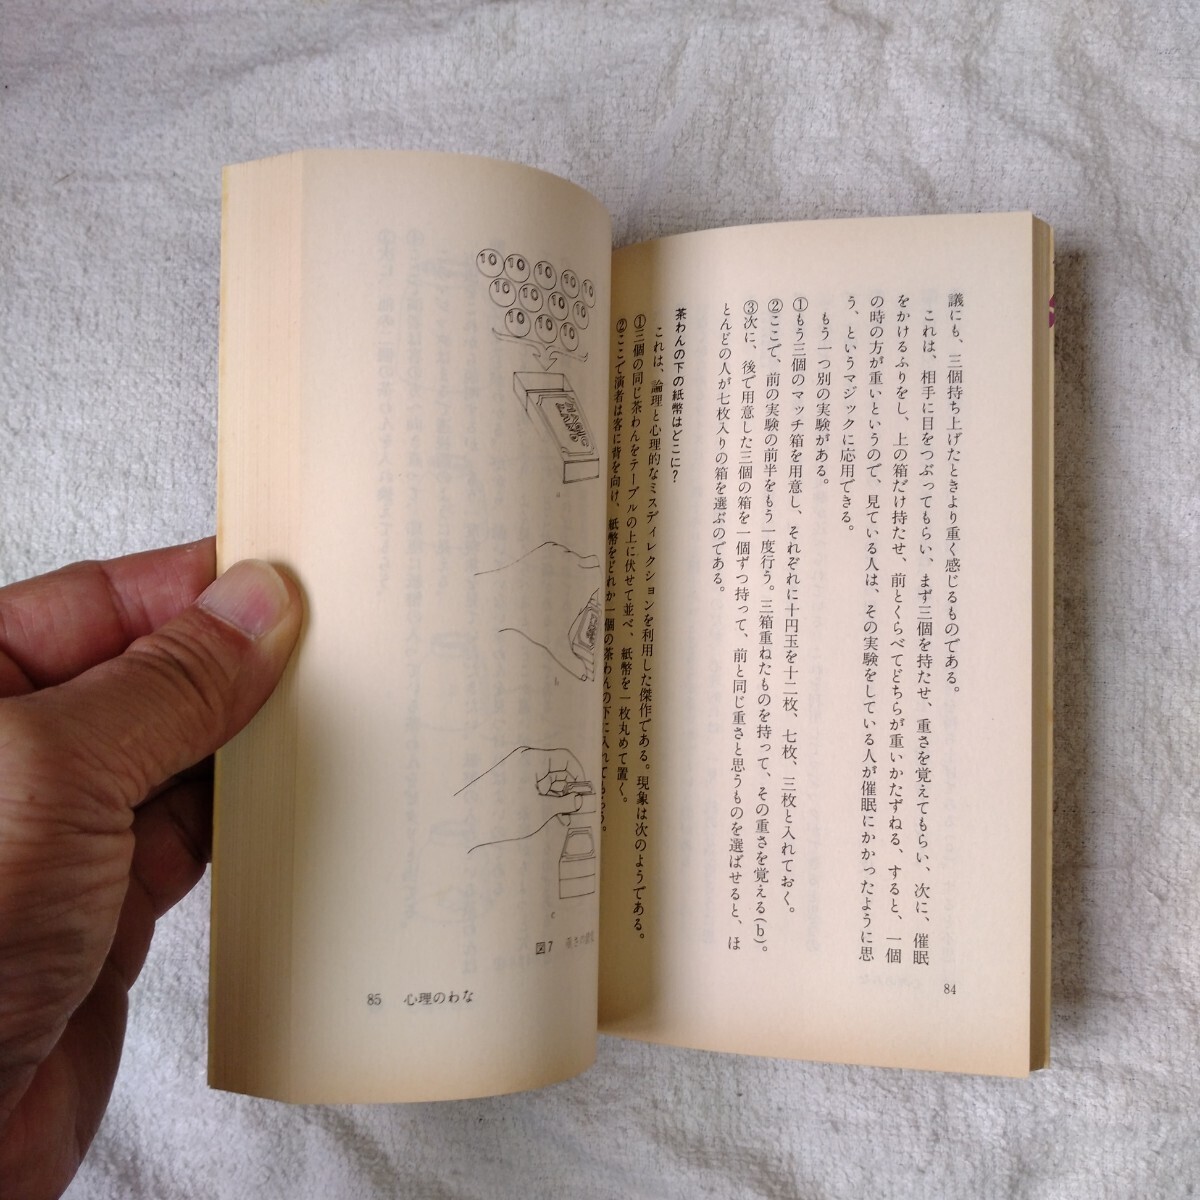 議にも、三個持ち上げたときより重く感じるものである。
これは、相手に目をつぶってもらい、まず三個を持たせ、重さを覚えてもらい、次に、催眠
をかけるふりをし、上の箱だけ持たせ、前とくらべてどちらが重いかたずねる、すると、一個
の時の方が重いというので、見ている人は、その実験をしている人が催眠にかかったように思
う、というマジックに応用できる。
もう一つ別の実験がある。
①もう三個のマッチ箱を用意し、それぞれに十円玉を十二枚、七枚、三枚と入れておく。
②ここで、前の実験の前半をもう一度行う。三箱重ねたものを持って、その重さを覚える(b)。
③次に、後で用意した三個の箱を一個ずつ持って、前と同じ重さと思うものを選ばせると、ほ
とんどの人が七枚入りの箱を選ぶのである。
茶わんの下の紙幣はどこに?
これは、論理と心理的なミスディレクションを利用した傑作である。現象は次のようである。
①三個の同じ茶わんをテーブルの上に伏せて並べ、紙幣を一枚丸めて置く。
②ここで演者は客に背を向け、紙幣をどれか一個の茶わんの下に入れてもらう。
84
10 10 10 10 10
10 10 10 10
10 10 10
a
b
c
図7 重さの錯覚
85 心理のわな